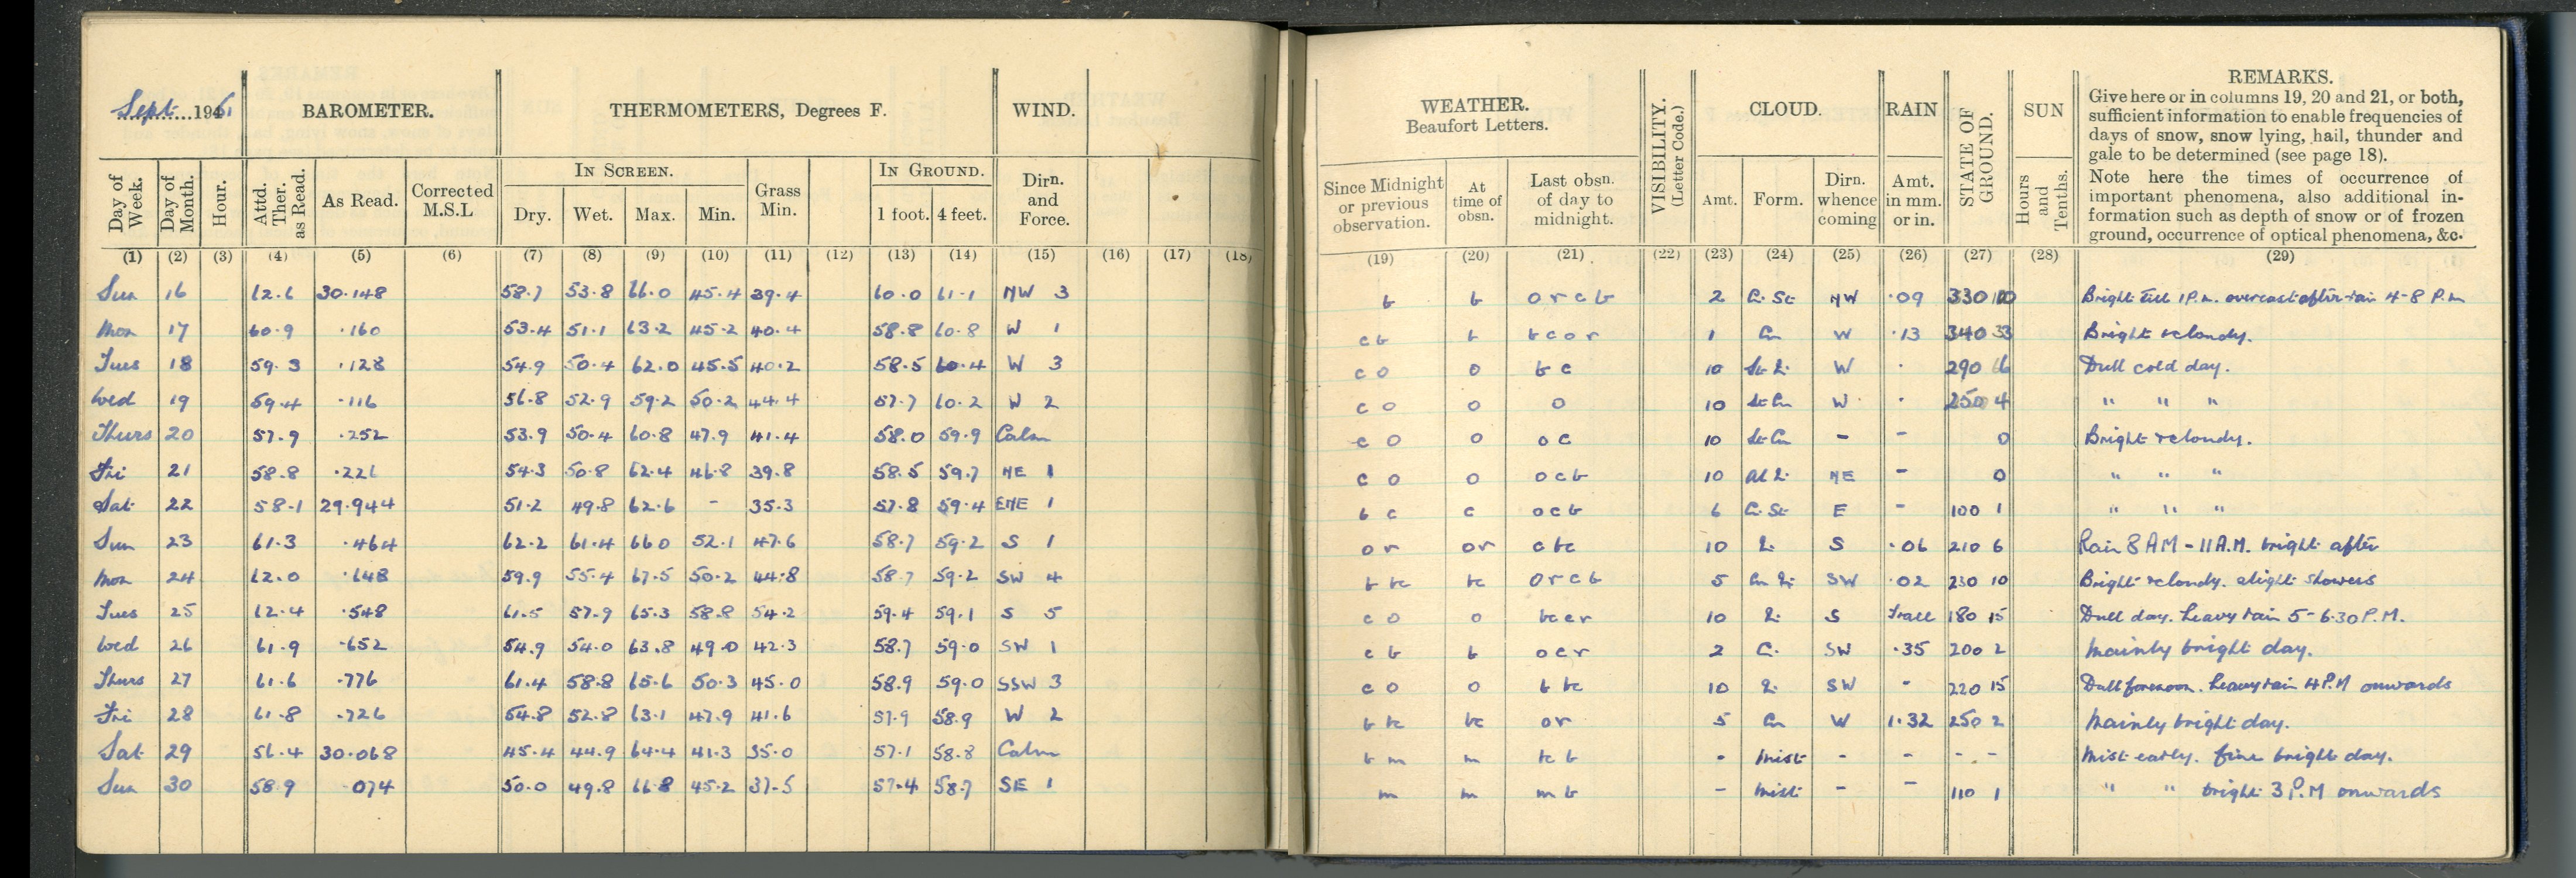 Sept. 1951 BAROMETER. THERMOMETERS, Degrees F. WIND.
Day of Week. Day of Month. Hour. Attd. Ther. as Read. As Read. Corrected M.S.L IN SCREEN. Dry. Wet. Max. Min. Grass Min. IN GROUND. 1 foot. 4 feet. Dirn. and Force.
(1) (2) (3) (4) (5) (6) (7) (8) (9) (10) (11) (12) (13) (14) (15) (16) (17) (18)
Sun 16 62.6 30.148 58.7 53.8 66.0 45.4 39.4 60.0 61.1 NW 3
Mon 17 60.9 .160 53.4 51.1 63.2 45.2 40.4 58.8 60.8 W 1
Tues 18 59.3 .128 54.9 50.4 62.0 45.5 40.2 58.5 60.4 W 3
Wed 19 59.4 .116 56.8 52.9 59.2 50.2 44.4 57.7 60.2 W 2
Thurs 20 57.9 .252 53.9 50.4 60.8 47.9 41.4 58.0 59.9 Calm
Fri 21 58.8 .226 54.3 50.8 62.4 46.8 39.8 58.5 59.7 NE 1
Sat 22 58.1 29.944 51.2 49.8 62.6 - 35.3 57.8 59.4 ENE 1
Sun 23 61.3 .464 62.2 61.4 66 0 52.1 47.6 58.7 59.2 S 1
Mon 24 62.0 .648 59.9 55.4 67.5 50.2 44.8 58.7 59.2 SW 4
Tues 25 62.4 .548 61.5 57.9 65.3 58.8 54.2 59.4 59.1 S 5
Wed 26 61.9 .652 54.9 54.0 63.8 49.0 42.3 58.7 59.0 SW 1
Thurs 27 61.6 .776 61.4 58.8 65.6 50.3 45.0 58.9 59.0 SSW 3
Fri 28 61.8 .726 54.8 52.8 63.1 47.9 41.6 57.9 58.9 W 2
Sat 29 56.4 30.068 45.4 44.9 64.4 41.3 35.0 57.1 58.8 Calm
Sun 30 58.9 074 50.0 49.8 66.8 45.2 37.5 57.4 58.7 SE 1
WEATHER. Beaufort Letters. VISIBILITY. (Letter Code.) CLOUD. RAIN STATE OF GROUND. SUN REMARKS.
Give here or in columns 19, 20 and 21, or both,
sufficient information to enable frequencies of
days of snow, snow lying, hail, thunder and
gale to be determined (see page 18).
Note here the times of occurrence of
important phenomena, also additional in-
formation such as depth of snow or of frozen
ground, occurrence of optical phenomena, &c.
Since Midnight or previous observation. At time of obsn. Last obsn. of day to midnight. Amt. Form. Dirn. whence coming Amt. in mm. or in. Hours and Tenths.
(19) (20) (21) (22) (23) (24) (25) (26) (27) (28) (29)
b b o r c b 2 Ci. St NW .09 330 10 Bright till 1 P.m. overcast after rain 4-8 P.m
c b b b c o r 1 Cu W .13 340 33 Bright & cloudy.
c o o b c 10 W . 290 16 Dull cold day.
c o o o 10 St Cu W . 250 4 " " "
c o o o c 10 St Cu - - 0 Bright & cloudy.
c o o o c b 10 NE - 0 " " "
b c c o c b 6 Ci. St E - 100 1 " " "
o r or c bc 10 S .06 210 6 Rain 8 AM - 11 A.M. bright after
b bc bc o r c b 5 SW .02 230 10 Bright & cloudy. slight showers
c o o bc c r 10 S Trace 180 15 Dull day. heavy rain 5-6.30 P.M.
c b b o c r 2 C. SW .35 200 2 Mainly bright day.
c o o b bc 10 SW - 220 15 Dull forenoon. heavy rain 4 P.M onwards
b bc bc o r 5 Cu W 1.32 250 2 Mainly bright day.
b m m bc b - Mist - - - - Mist early. fine bright day.
m m m b - Mist - - 110 1 " " bright 3 P.M onwards